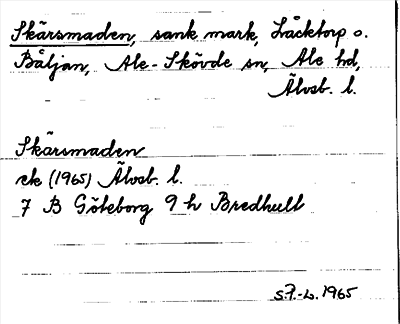 Skärsmaden, sank mark, Låcktorp o.
Båljan, Ale-Skövde sn, Ale hd,
Älvsb. l.
Skärsmaden
ek (1965) Älvsb. l.
7 B Göteborg 9 h Bredhult
S.F.-L. 1965